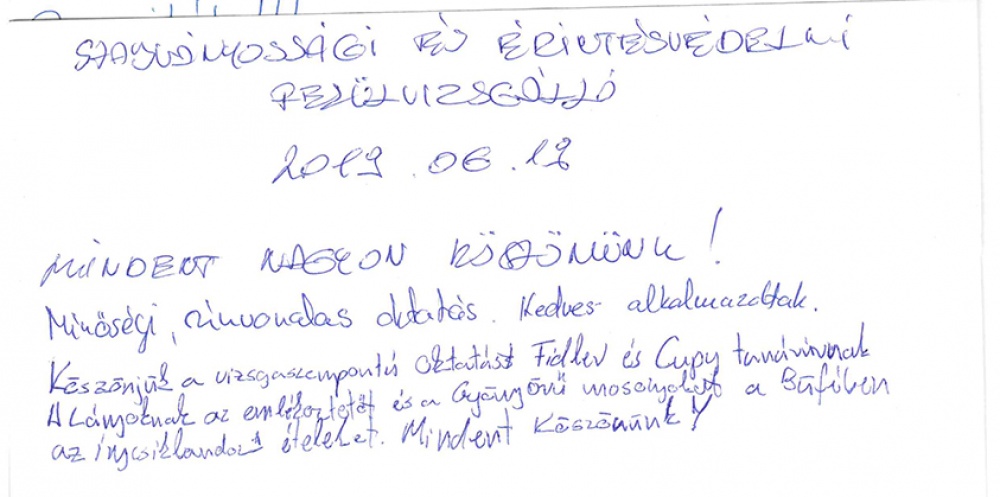 SZABVÁNYOSSÁGI ÉS ÉRINTÉSVÉDELMI
FELÜLVIZSGÁLLÓ
2019.06.18
MINDENT NAGYON KÖSZÖNÜNK!
Minőségi, zinvonalas oktatás. Kedves alkalmazottak.
Köszönjük a vizsgaszempontú oktatást Fidler és Cupy tanárurnak
A Lányoknak az emlékoztetőt és a Gyönyörű mosolyokat a Büfében
az ínycsiklandozó ételeket. Mindent Köszönünk!